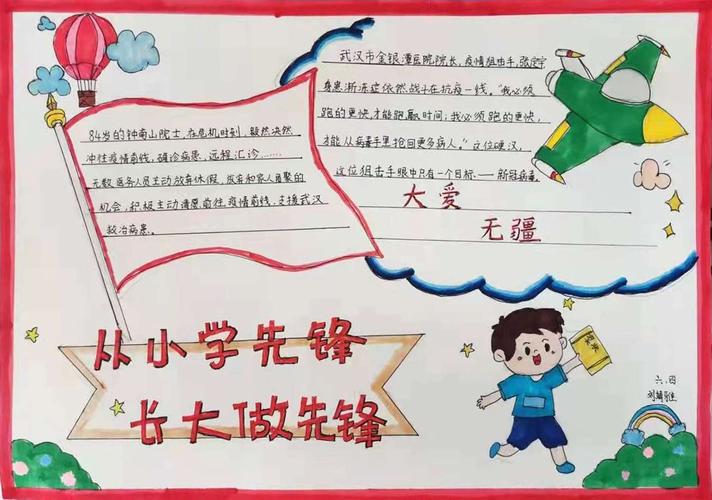 84岁的钟南山院士,在危机时刻,毅然决然
冲往疫情前线,确诊病患、远程汇诊……
无数医务人员主动放弃休假,放弃和家人团聚的
机会,积极主动请愿前往疫情前线,支援武汉
救治病患。
武汉市金银潭医院院长,疫情狙击手,张定宇
身患渐冻症依然战斗在抗疫一线,“我必须
跑的更快,才能跑赢时间;我必须跑的更快,
才能从病毒手里抢回更多病人。”这位硬汉,
这位狙击手眼中只有一个目标——新冠病毒。
大爱
无疆
从小学先锋
长大做先锋
六.四